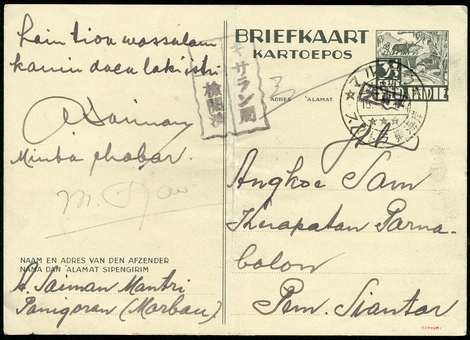 Lain tiou wassalam
kamin doea laki istri
A Saiman
Minta chabar.
NAAM EN ADRES VAN DEN AFZENDER
NAMA DAN ALAMAT SIPENGIRIM
A. Saiman Mantri
Panigoran (Marbau)
BRIEFKAART
KARTOEPOS
キサラン局
検閲済
ADRES ALAMAT
Angkoe Sam
Kerapatan Parna-
bolon
Pem. Siantar